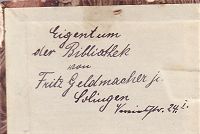 Eigentum
der Bibliothek
von
Fritz Geldmacher jr
Solingen
24 I.